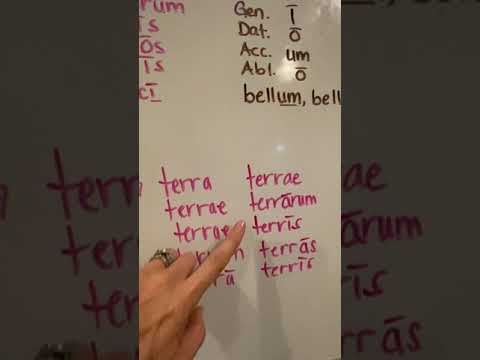 rum
īs
ōs
īs
cī
Gen. ī
Dat. ō
Acc. um
Abl. ō
bellum, bell
terra terrae
terrae terrārum
terrae terrīs
terrās
terrīs